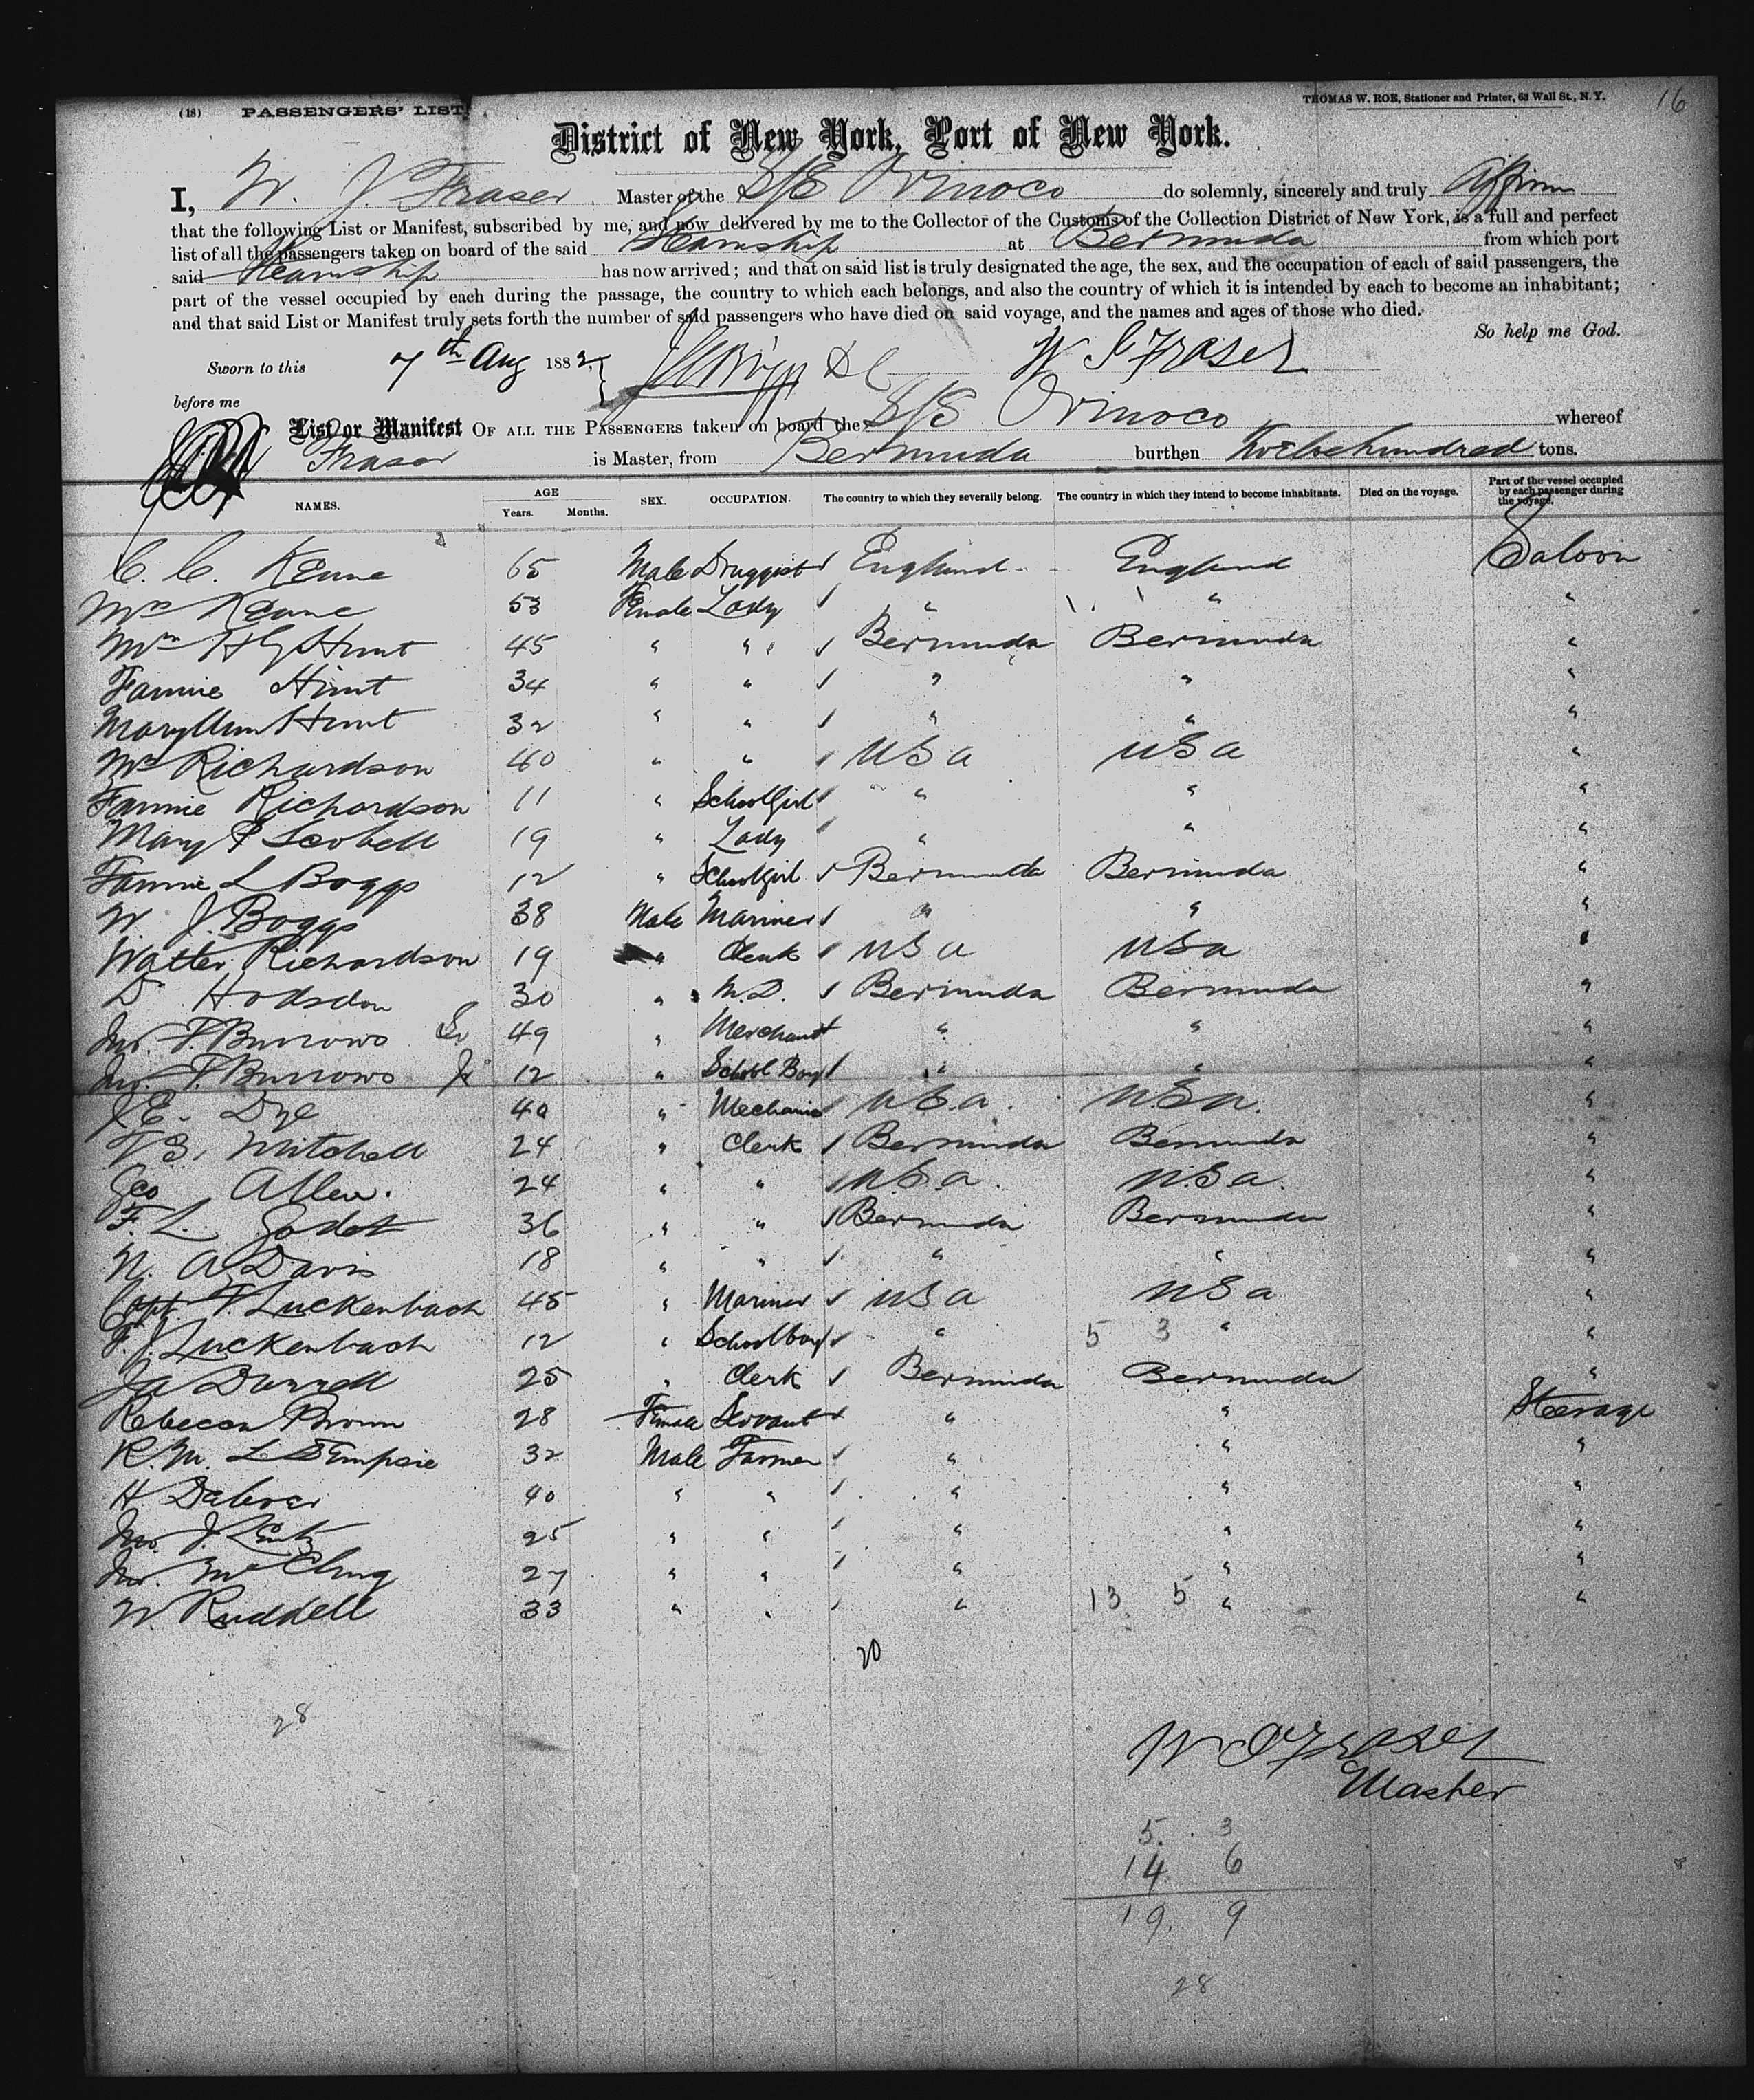 (18) PASSENGERS' LIST. THOMAS W. ROE, Stationer and Printer, 63 Wall St., N.Y. 16
District of New York, Port of New York.
I, W. J. Fraser Master of the S/S Orinoco do solemnly, sincerely and truly Affirm
that the following List or Manifest, subscribed by me, and now delivered by me to the Collector of the Customs of the Collection District of New York, is a full and perfect
list of all the passengers taken on board of the said Steamship at Bermuda from which port
said Steamship has now arrived; and that on said list is truly designated the age, the sex, and the occupation of each of said passengers, the
part of the vessel occupied by each during the passage, the country to which each belongs, and also the country of which it is intended by each to become an inhabitant;
and that said List or Manifest truly sets forth the number of said passengers who have died on said voyage, and the names and ages of those who died.
So help me God.
Sworn to this 7th Aug 1882 W J Fraser
before me
List or Manifest OF ALL THE PASSENGERS taken on board the S/S Orinoco whereof
Fraser is Master, from Bermuda burthen Twelve hundred tons.
NAMES. AGE Years. Months. SEX. OCCUPATION. The country to which they severally belong. The country in which they intend to become inhabitants. Died on the voyage. Part of the vessel occupied by each passenger during the voyage.
C. C. Keane 65 Male Druggist England England Saloon
Mrs Keane 53 Female Lady " " "
Mrs H G Hunt 45 " " Bermuda Bermuda "
Fannie Hunt 34 " " " " "
Mary Ann Hunt 32 " " " " "
Mrs Richardson 40 " " USa USa "
Fannie Richardson 11 " Schoolgirl " " "
Mary P Scobell 19 " Lady " " "
Fannie L Boggs 12 " Schoolgirl Bermuda Bermuda "
W. J. Boggs 38 Male Mariner " " "
Walter Richardson 19 " Clerk USa USa "
Dr Hodsdon 30 " M.D. Bermuda Bermuda "
Jno. T. Burrows Sr 49 " Merchant " " "
Jno. T. Burrows Jr 12 " School Boy " " "
J E. Dye 40 " Mechanic USa. USa. "
T S. Mitchell 24 " Clerk Bermuda Bermuda "
Geo Allen. 24 " " USa. USa. "
F. L. Godet 36 " " Bermuda Bermuda "
N. A Davis 18 " " " " "
Capt. F. Luckenbach 45 " Mariner USa USa "
F. J. Luckenbach 12 " Schoolboy " 5 3 " "
Ja Durrell 25 " Clerk Bermuda Bermuda "
Rebecca Brown 28 Female Servant " " Steerage
R. M. L. Dempsie 32 Male Farmer " " "
H 40 " " " " "
Jno. J. Lentz 25 " " " " "
Jno. McClung 27 " " " " "
W. Ruddell 33 " " " 13 5 " "
20
28
W J Fraser
Master
5. 3
14 6
19. 9
28